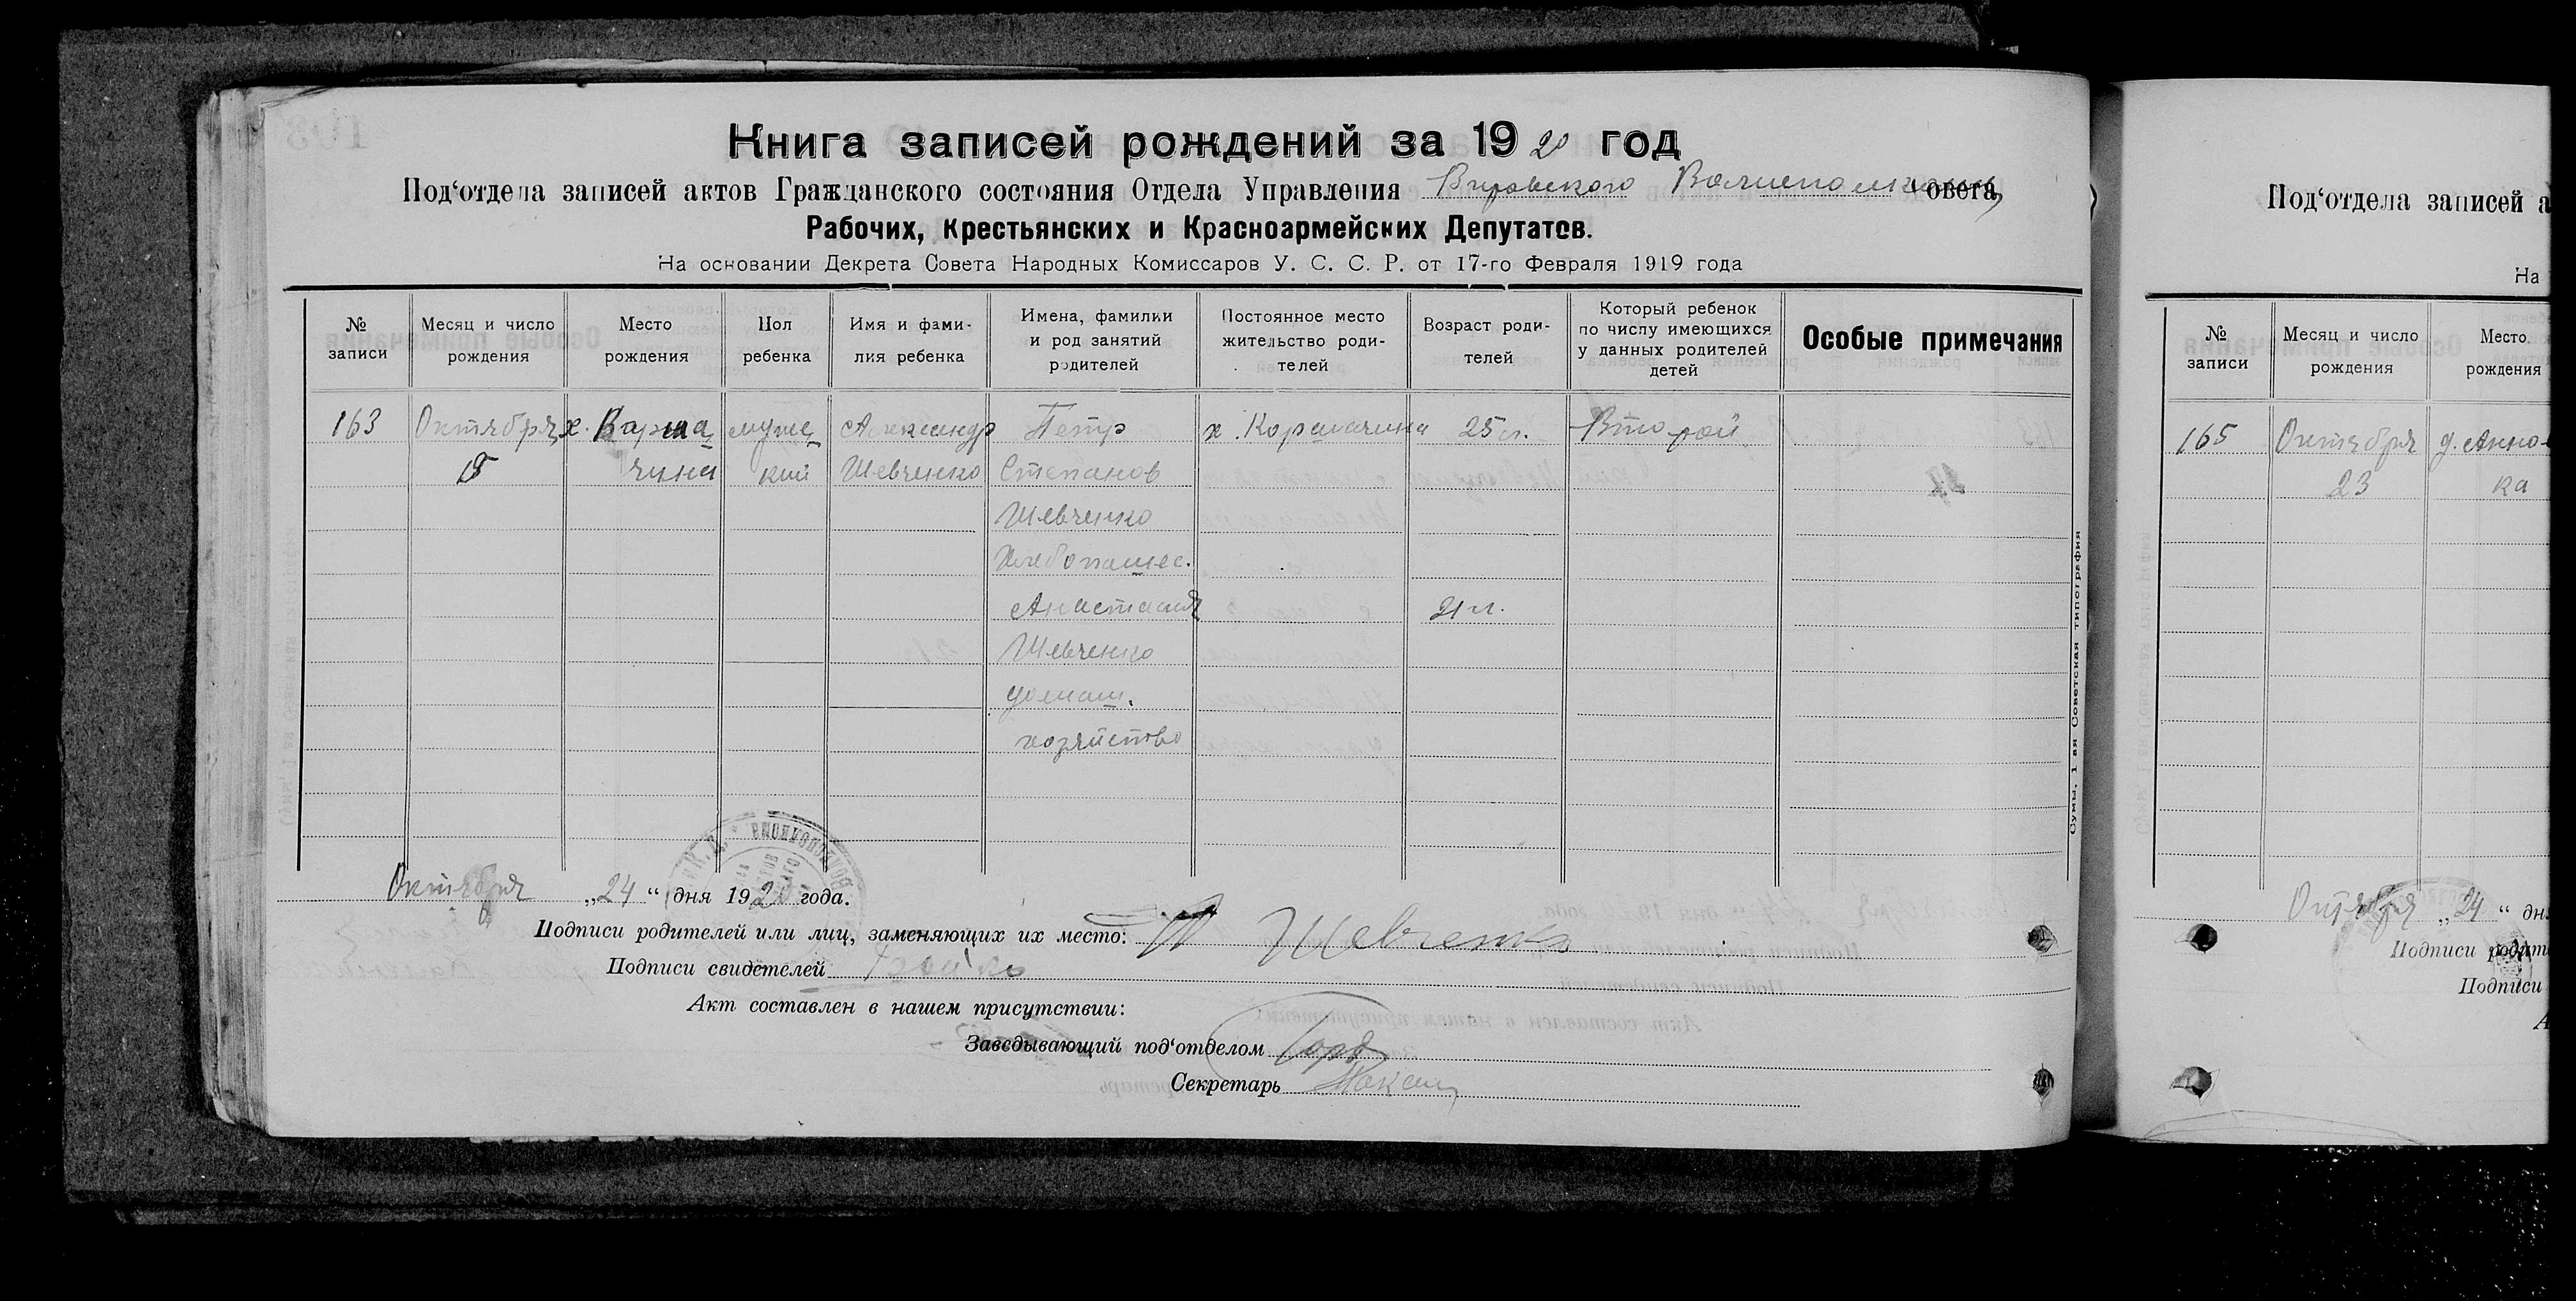 Книга записей рождений за 1920 год
Под‘отдела записей актов Гражданского состояния Отдела Управления Вировского Волисполкома Совета
Рабочих, Крестьянских и Красноармейских Депутатов.
На основании Декрета Совета Народных Комиссаров У. С. С. Р. от 17-го Февраля 1919 года
№ записи
Месяц и число рождения
Место рождения
Пол ребенка
Имя и фами-
лия ребенка
Имена, фамилии
и род занятий
родителей
Постоянное место
жительство роди-
телей
Возраст роди-
телей
Который ребенок
по числу имеющихся
у данных родителей
детей
Особые примечания
163
Октября
х.
чина
муже
кий
Александр
Шевченко
Петр
Степанов
Шевченко
Хлебопашес.
Анастасия
Шевченко
домаш.
хозяйство
х.
25 л.
21 л.
Второй
Сумы, 1-ая Советская типография
Октября „24“ дня 1920 года.
Подписи родителей или лиц, заменяющих их место: П Шевченко
Подписи свидетелей
Акт составлен в нашем присутствии:
Заведывающий под‘отделом
Секретарь
Под‘отдела записей а
На
№ записи
Месяц и число рождения
Место рождения
165
Октября
23
д. Анно-
ка
Октября „24“ дн
Подписи родит
Подписи
А